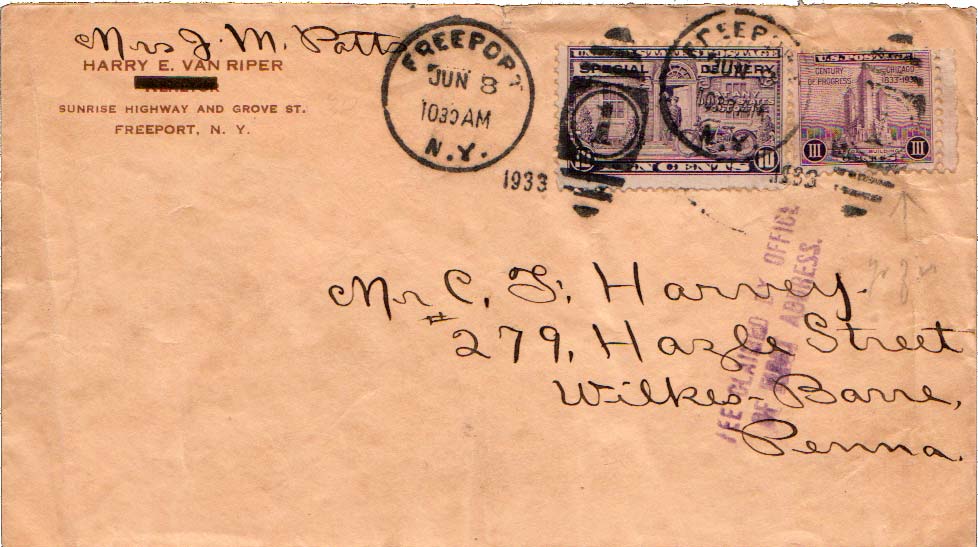 Mrs J. M. Patts
HARRY E. VAN RIPER
SUNRISE HIGHWAY AND GROVE ST.
FREEPORT, N. Y.
FREEPORT
JUN 8
1030 AM
N.Y.
1933
UNITED STATES POSTAGE
SPECIAL DELIVERY
10 TEN CENTS 10
FREEPORT
JUN 8
1030 AM
N.Y.
1933
U.S. POSTAGE
CENTURY OF PROGRESS
CHICAGO 1833-1933
III III
FEE CLAIMED BY OFFICE
OF FIRST ADDRESS.
Mr C. F. Harvey.
#279, Hazle Street
Wilkes-Barre,
Penna.